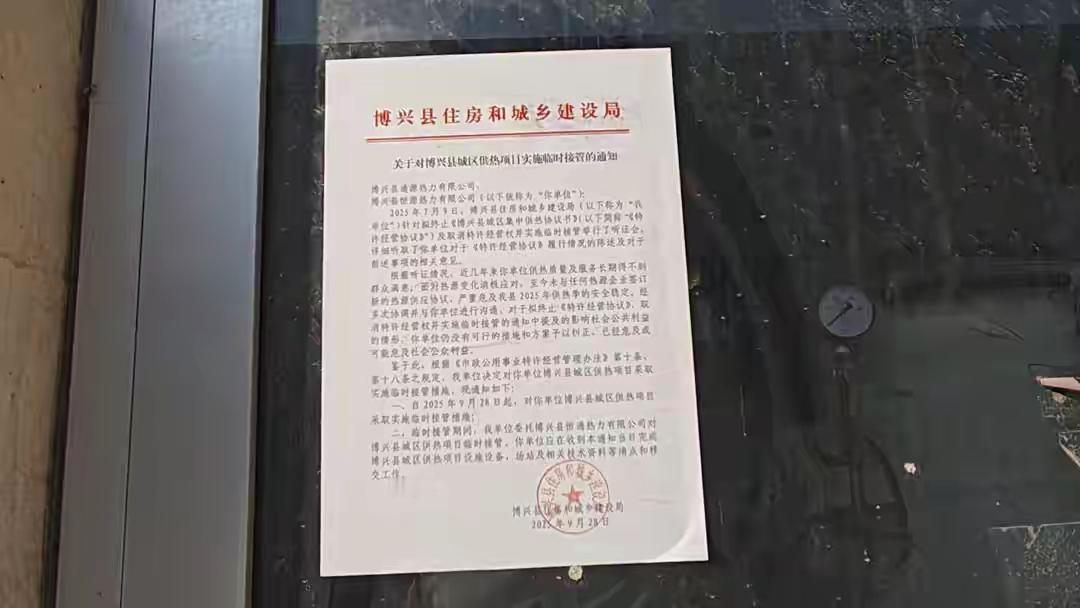 博兴县住房和城乡建设局
关于对博兴县城区供热项目实施临时接管的通知
博兴县通源热力有限公司、
博兴县恒源热力有限公司（以下统称为“你单位”）：
2025年7月9日，博兴县住房和城乡建设局（以下称为“我
单位”）针对拟终止《博兴县城区集中供热协议书》（以下简称“《特
许经营协议》”）及取消特许经营权并实施临时接管举行了听证会，
详细听取了你单位对于《特许经营协议》履行情况的陈述及对于
前述事项的相关意见。
根据听证情况，近几年来你单位供热质量及服务长期得不到
群众满意，面对热源变化消极应对，至今未与任何热源企业签订
新的热源供应协议，严重危及我县2025年供热季的安全稳定。经
多次协调并与你单位进行沟通，对于拟终止《特许经营协议》、取
消特许经营权并实施临时接管的通知中提及的影响社会公共利益
的情形，你单位仍没有可行的措施和方案予以纠正，已经危及或
可能危及社会公众利益。
鉴于此，根据《市政公用事业特许经营管理办法》第十条、
第十八条之规定，我单位决定对你单位博兴县城区供热项目采取
实施临时接管措施，现通知如下：
一、自2025年9月28日起，对你单位博兴县城区供热项目
采取实施临时接管措施；
二、临时接管期间，我单位委托博兴县恒通热力有限公司对
博兴县城区供热项目临时接管。你单位应在收到本通知当日完成
博兴县城区供热项目设施设备、场站及相关技术资料等清点和移
交工作。
博兴县住房和城乡建设局
2025年9月28日